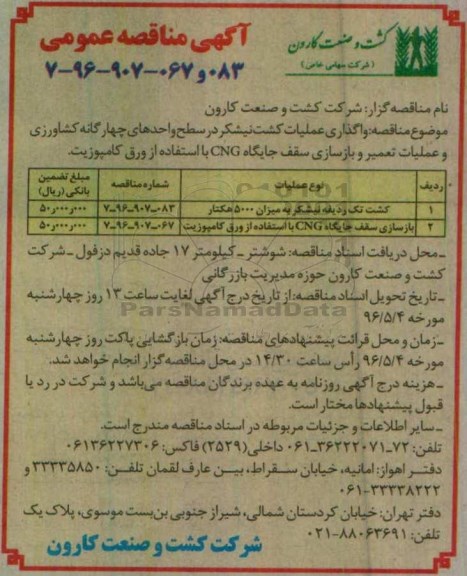 کشت و صنعت کارون
(شرکت سهامی خاص)
آگهی مناقصه عمومی
۰۸۳ و ۰۶۷-۹۰۷-۹۶-۷
نام مناقصه‌گزار: شرکت کشت و صنعت کارون
موضوع مناقصه: واگذاری عملیات کشت نیشکر در سطح واحدهای چهارگانه کشاورزی
و عملیات تعمیر و بازسازی سقف جایگاه CNG با استفاده از ورق کامپوزیت.
ردیف نوع عملیات شماره مناقصه مبلغ تضمین بانکی (ریال)
۱ کشت تک ردیفه نیشکر به میزان ۵۰۰۰ هکتار ۰۸۳-۹۰۷-۹۶-۷
۲ بازسازی سقف جایگاه CNG با استفاده از ورق کامپوزیت ۰۶۷-۹۰۷-۹۶-۷
ـ محل دریافت اسناد مناقصه: شوشتر ـ کیلومتر ۱۷ جاده قدیم دزفول ـ شرکت
کشت و صنعت کارون حوزه مدیریت بازرگانی
ـ تاریخ تحویل اسناد مناقصه: از تاریخ درج آگهی لغایت ساعت ۱۳ روز چهارشنبه
مورخه ۹۶/۵/۴
ParsNamadData
ـ زمان و محل قرائت پیشنهادهای مناقصه: زمان بازگشایی پاکت روز چهارشنبه
مورخه ۹۶/۵/۴ رأس ساعت ۱۴/۳۰ در محل مناقصه‌گزار انجام خواهد شد.
ـ هزینه درج آگهی روزنامه به عهده برندگان مناقصه می‌باشد و شرکت در رد یا
قبول پیشنهادها مختار است.
ـ سایر اطلاعات و جزئیات مربوطه در اسناد مناقصه مندرج است.
تلفن: ۷۲-۳۶۲۲۲۰۷۱-۰۶۱ داخلی (۲۵۲۹) فاکس: ۰۶۱۳۶۲۲۷۳۰۶
دفتر اهواز: امانیه، خیابان سقراط، بین عارف لقمان تلفن: ۳۳۳۳۵۸۵۰ و
۰۶۱-۳۳۳۳۸۲۲۲
دفتر تهران: خیابان کردستان شمالی، شیراز جنوبی بن‌بست موسوی، پلاک یک
تلفن: ۰۲۱-۸۸۰۶۳۶۹۱
شرکت کشت و صنعت کارون